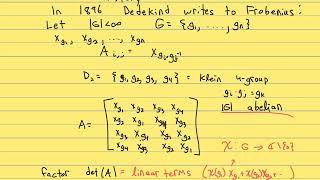 In 1896 Dedekind writes to Frobenius:
Let |G|<∞ G = {g₁, ..., gₙ}
x_g₁, x_g₂, ..., x_gₙ
A_i,j = x_gᵢgⱼ⁻¹
D₂ = {g₁, g₂, g₃, g₄} = Klein 4-group
gᵢ · gⱼ = gₖ
|G| abelian
A = [
x_g₁ x_g₂ x_g₃ x_g₄
x_g₂ x_g₁ x_g₄ x_g₃
x_g₃ x_g₄ x_g₁ x_g₂
x_g₄ x_g₃ x_g₂ x_g₁
]
χ: G → ℂ\{0}
factor det(A) = linear terms (χ(g₁)x_g₁ + χ(g₂)x_g₂ + ...